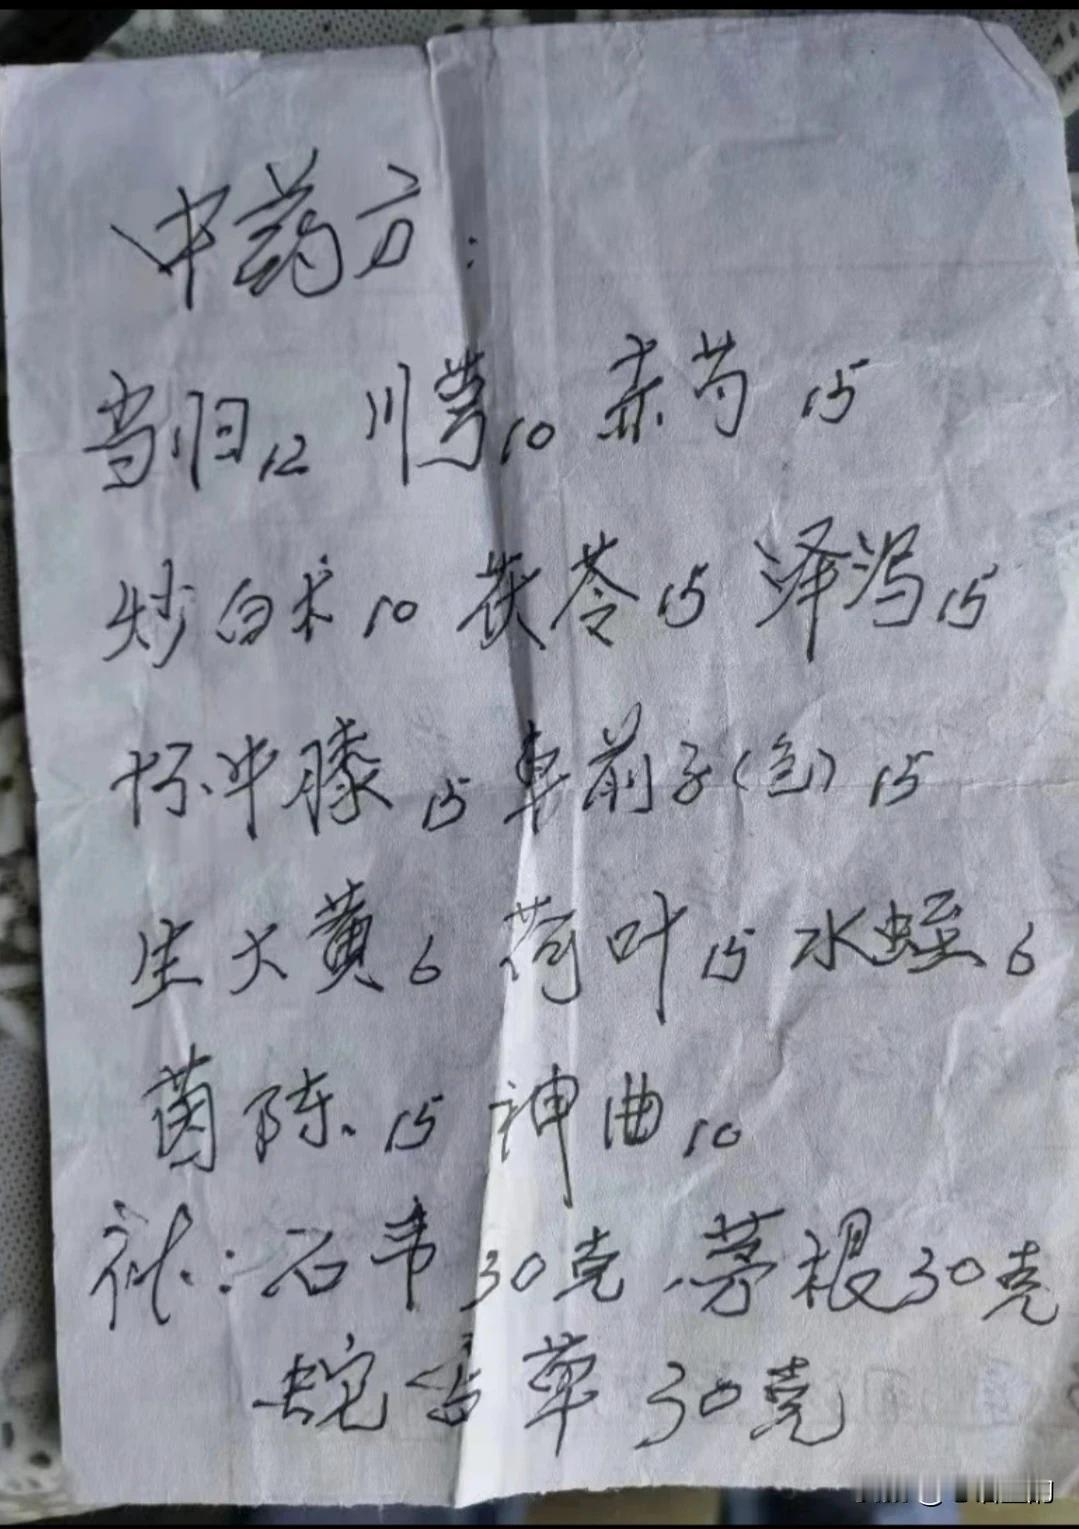 中药方：
当归12 川芎10 赤芍 15
炒白术10 茯苓15 泽泻15
怀牛膝15 车前子(包) 15
生大黄6 荷叶15 水蛭6
茵陈15 神曲10
补：石韦30克 茅根30克
蛇舌草30克